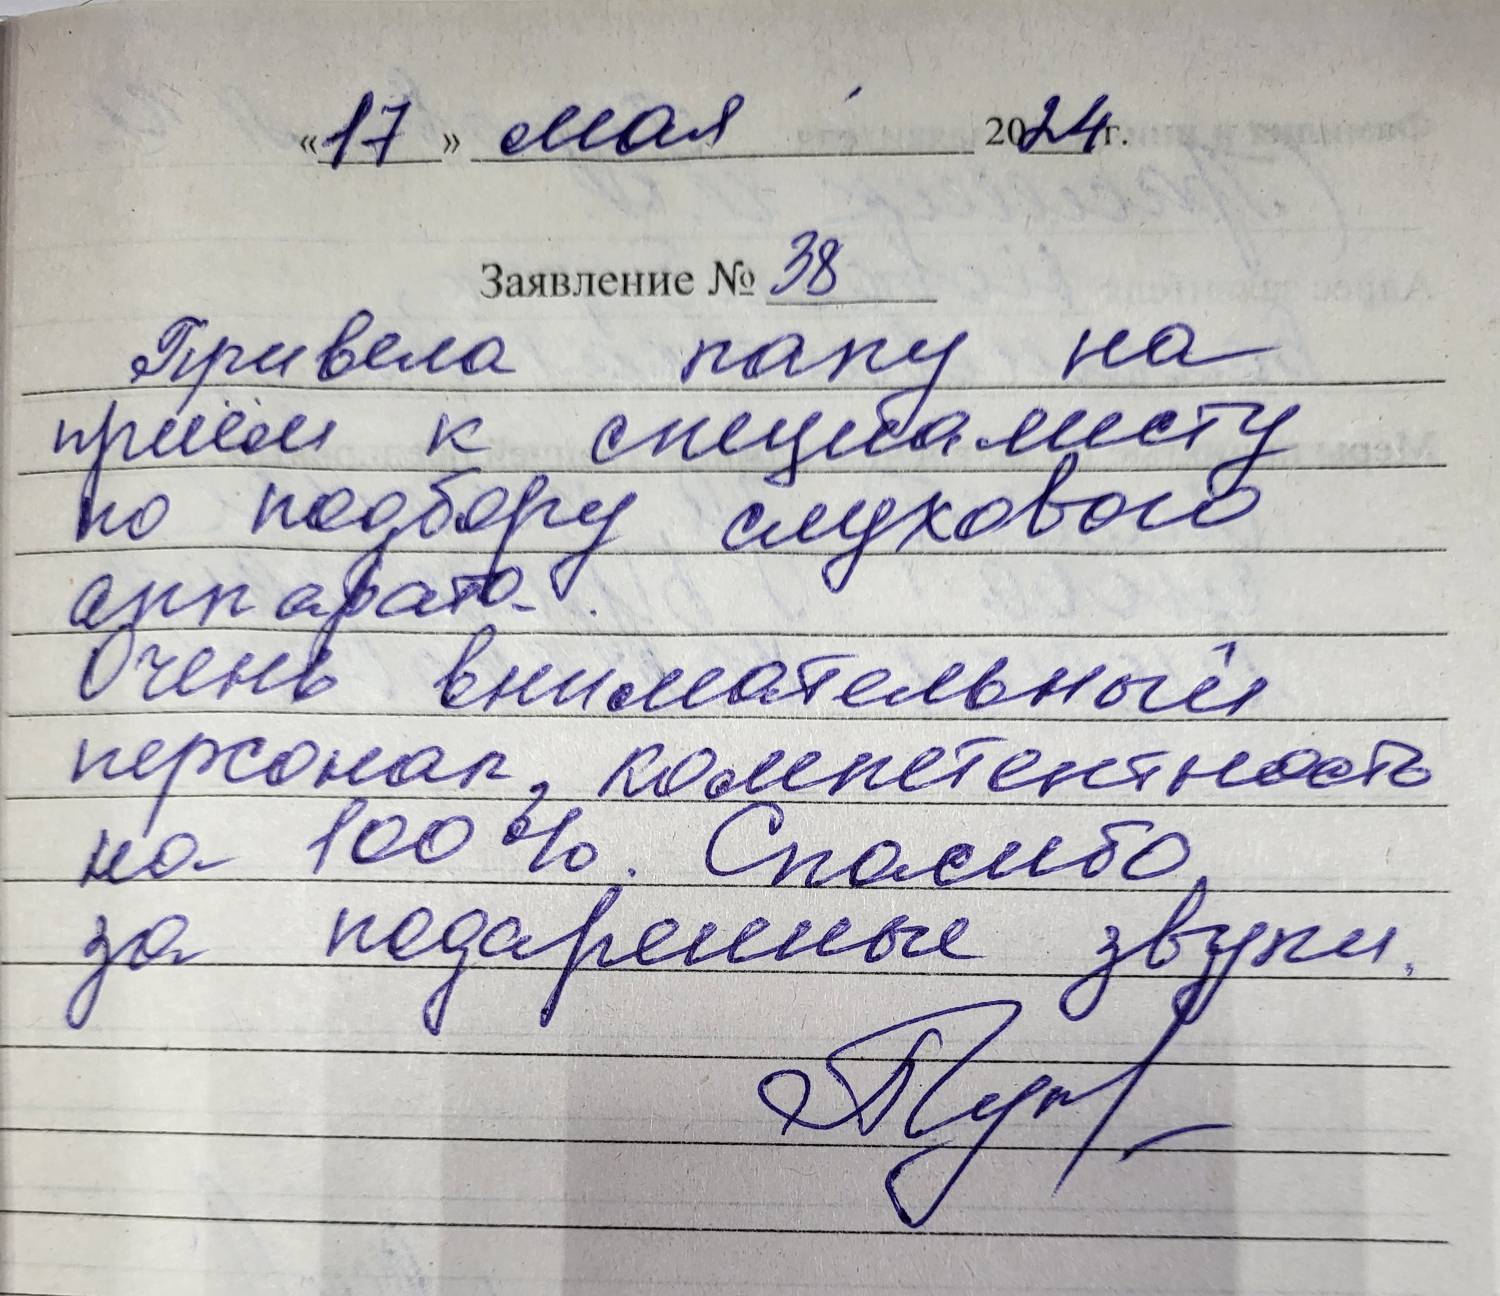 «17» мая 2024 г.
Заявление № 38
Привела папу на
приём к специалисту
по подбору слухового
аппарата.
Очень внимательный
персонал, компетентность
на 100%. Спасибо
за подаренные звуки.